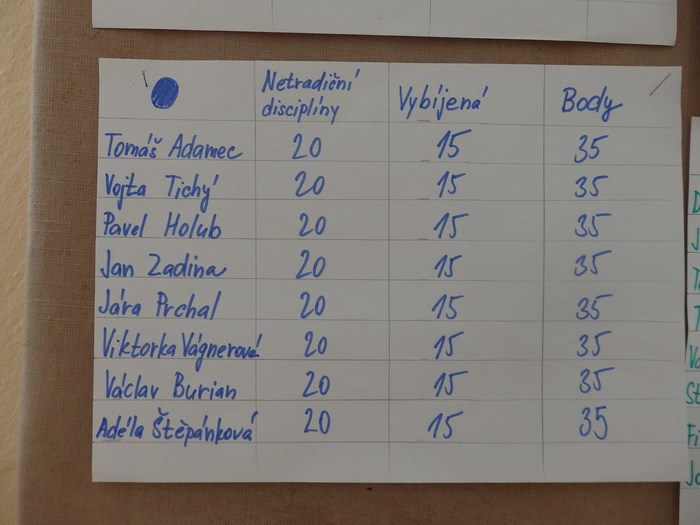 Netradiční disciplíny Vybíjená Body
Tomáš Adamec 20 15 35
Vojta Tichý 20 15 35
Pavel Holub 20 15 35
Jan Zadina 20 15 35
Jára Prchal 20 15 35
Viktorka Vágnerová 20 15 35
Václav Burian 20 15 35
Adéla Štěpánková 20 15 35